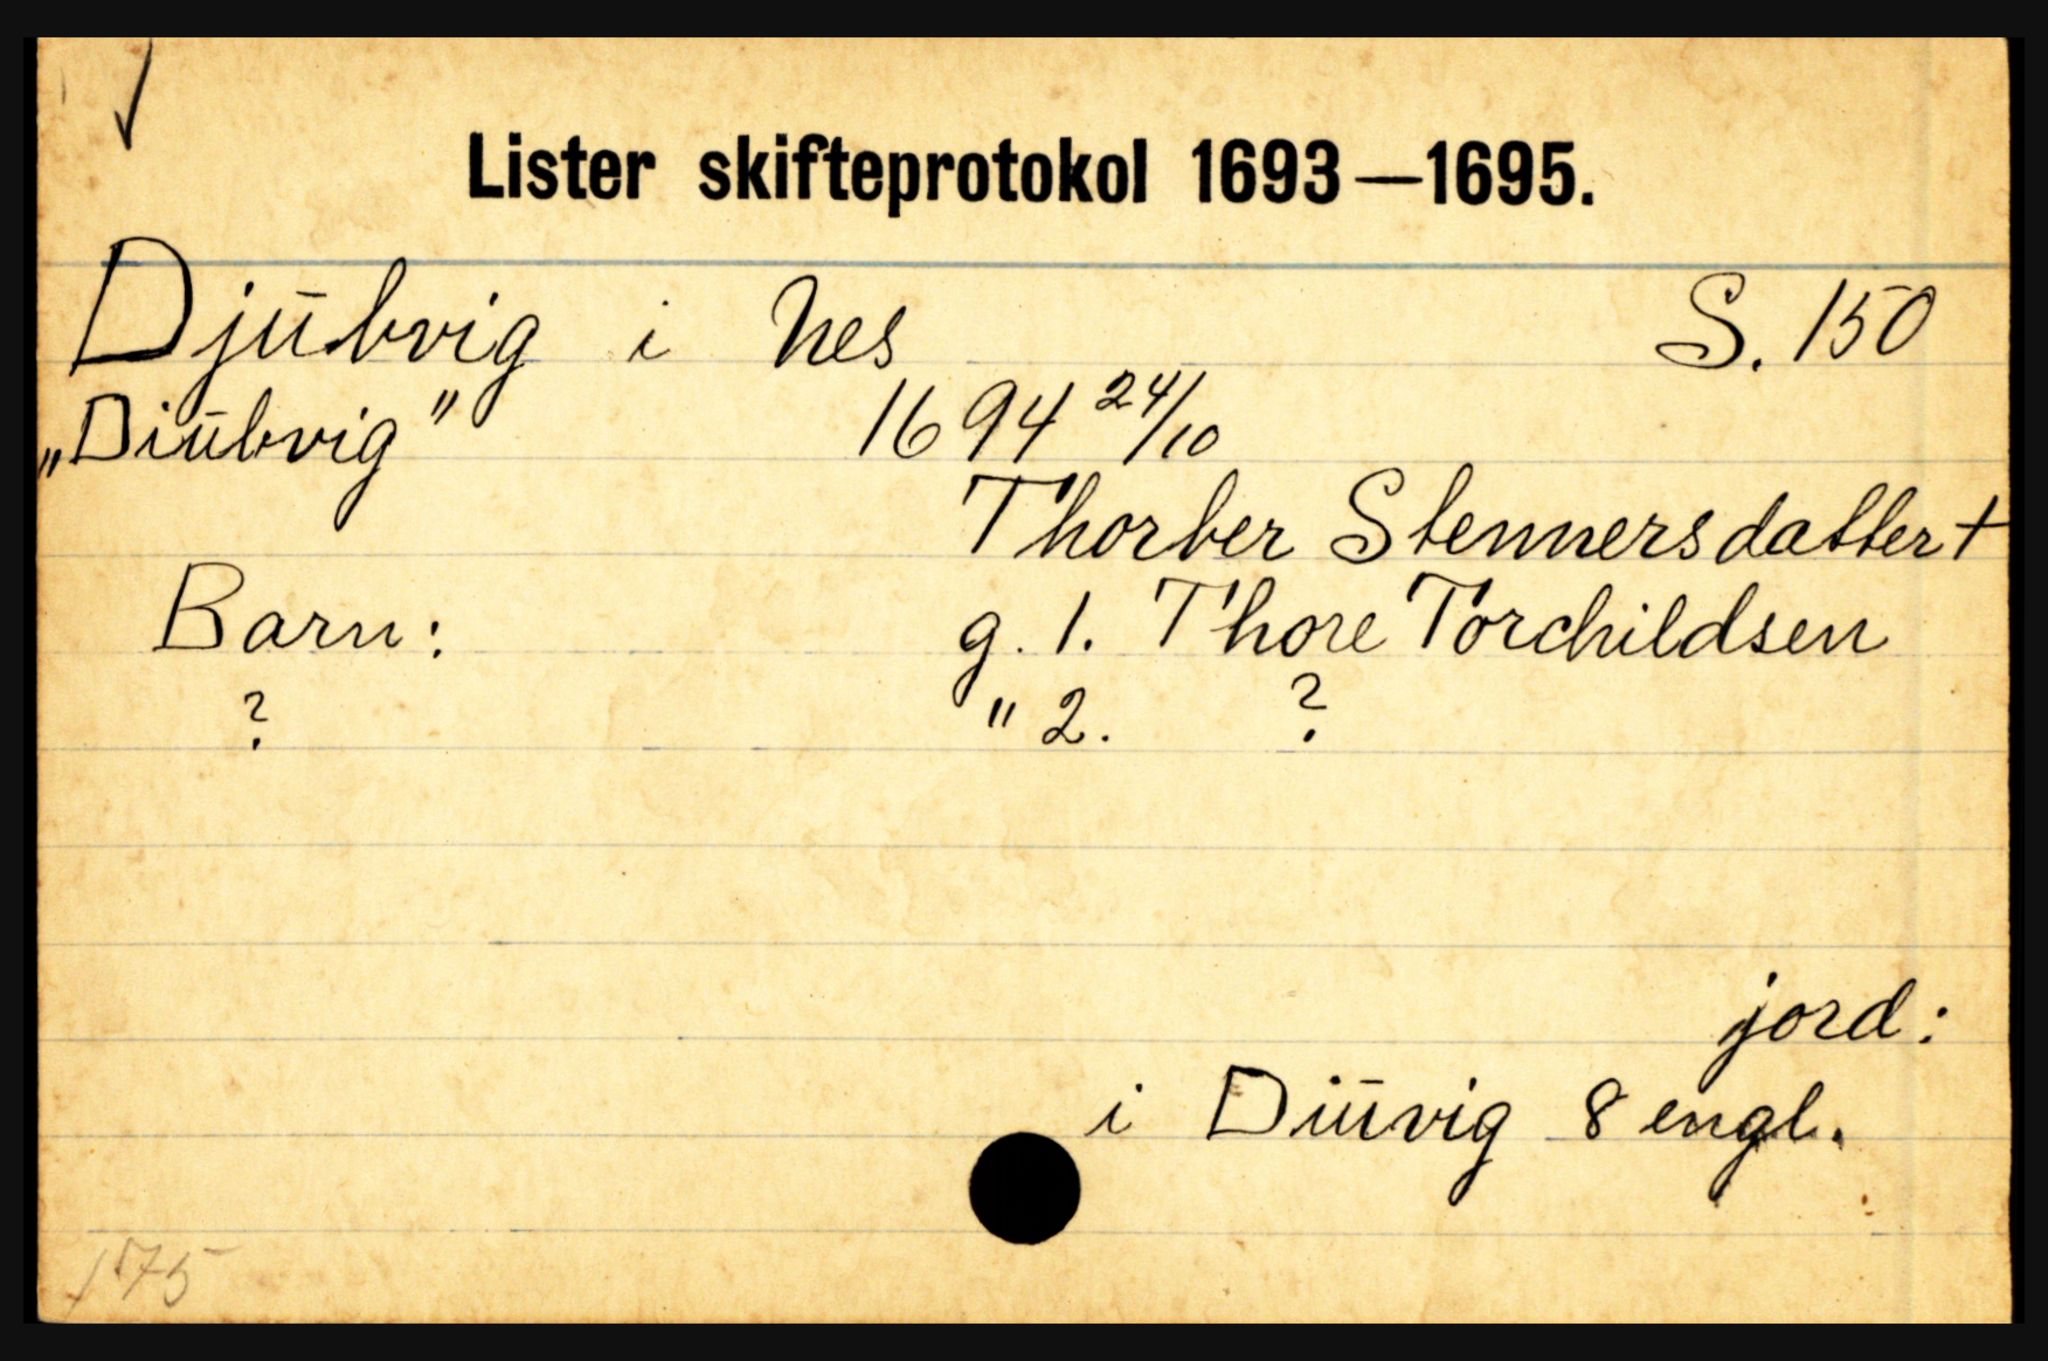 Lister skifteprotokol 1693—1695.
Djübvig i Nes S. 150
„Diübvig" 1694 24/10
Thorber Stennersdatter †
Barn: g. 1. Thore Torchildsen
? " 2. ?
jord:
i Diüvig 8 engl.